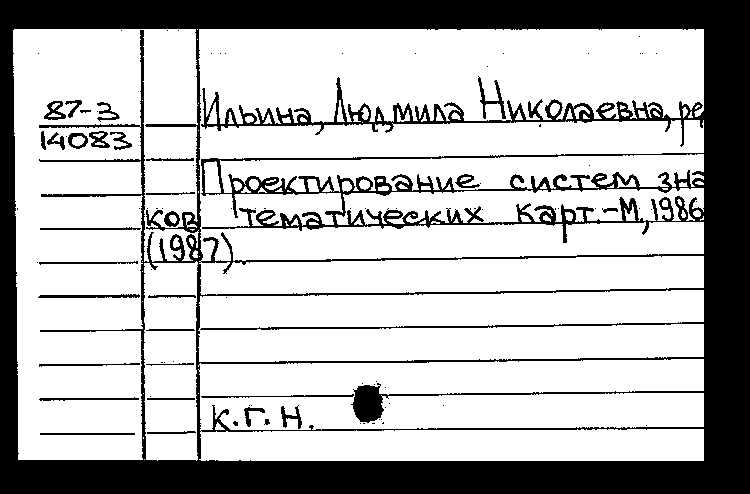 87-3
14083
Ильина, Людмила Николаевна, ре
Проектирование систем зна
ков тематических карт.-М, 1986
(1987).
к.г.н.